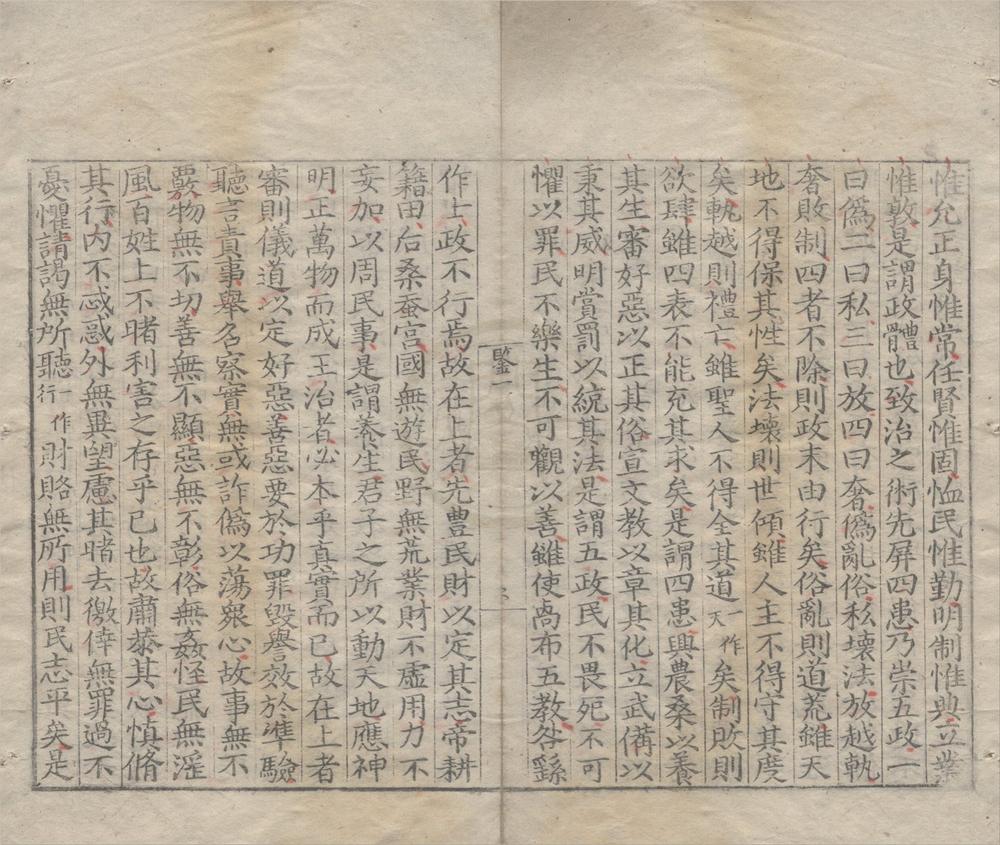 惟允正身惟常任賢惟固恤民惟勤明制惟典立業
惟敦是謂政體也致治之術先屏四患乃崇五政一
曰僞二曰私三曰放四曰奢僞亂俗私壞法放越軌
奢敗制四者不除則政末由行矣俗亂則道荒雖天
地不得保其性矣法壞則世傾雖人主不得守其度
矣軌越則禮亡雖聖人不得全其道一作天矣制敗則
欲肆雖四表不能充其求矣是謂四患興農桑以養
其生審好惡以正其俗宣文教以章其化立武備以
秉其威明賞罰以統其法是謂五政民不畏死不可
懼以罪民不樂生不可觀以善雖使卨布五教咎繇
鑒一
作士政不行焉故在上者先豊民財以定其志帝耕
籍田后桑蚕宮國無遊民野無荒業財不虛用力不
妄加以周民事是謂養生君子之所以動天地應神
明正萬物而成王治者必本乎真實而已故在上者
審則儀道以定好惡善惡要於功罪毀譽效於準驗
聽言責事舉名察實無或詐僞以蕩衆心故事無不
覈物無不切善無不顯惡無不彰俗無姦怪民無滛
風百姓上下睹利害之存乎已也故肅恭其心慎脩
其行内不忒惑外無異望慮其睹去徼倖無罪過不
憂懼請謁無所聽一作行財賂無所用則民志平矣是